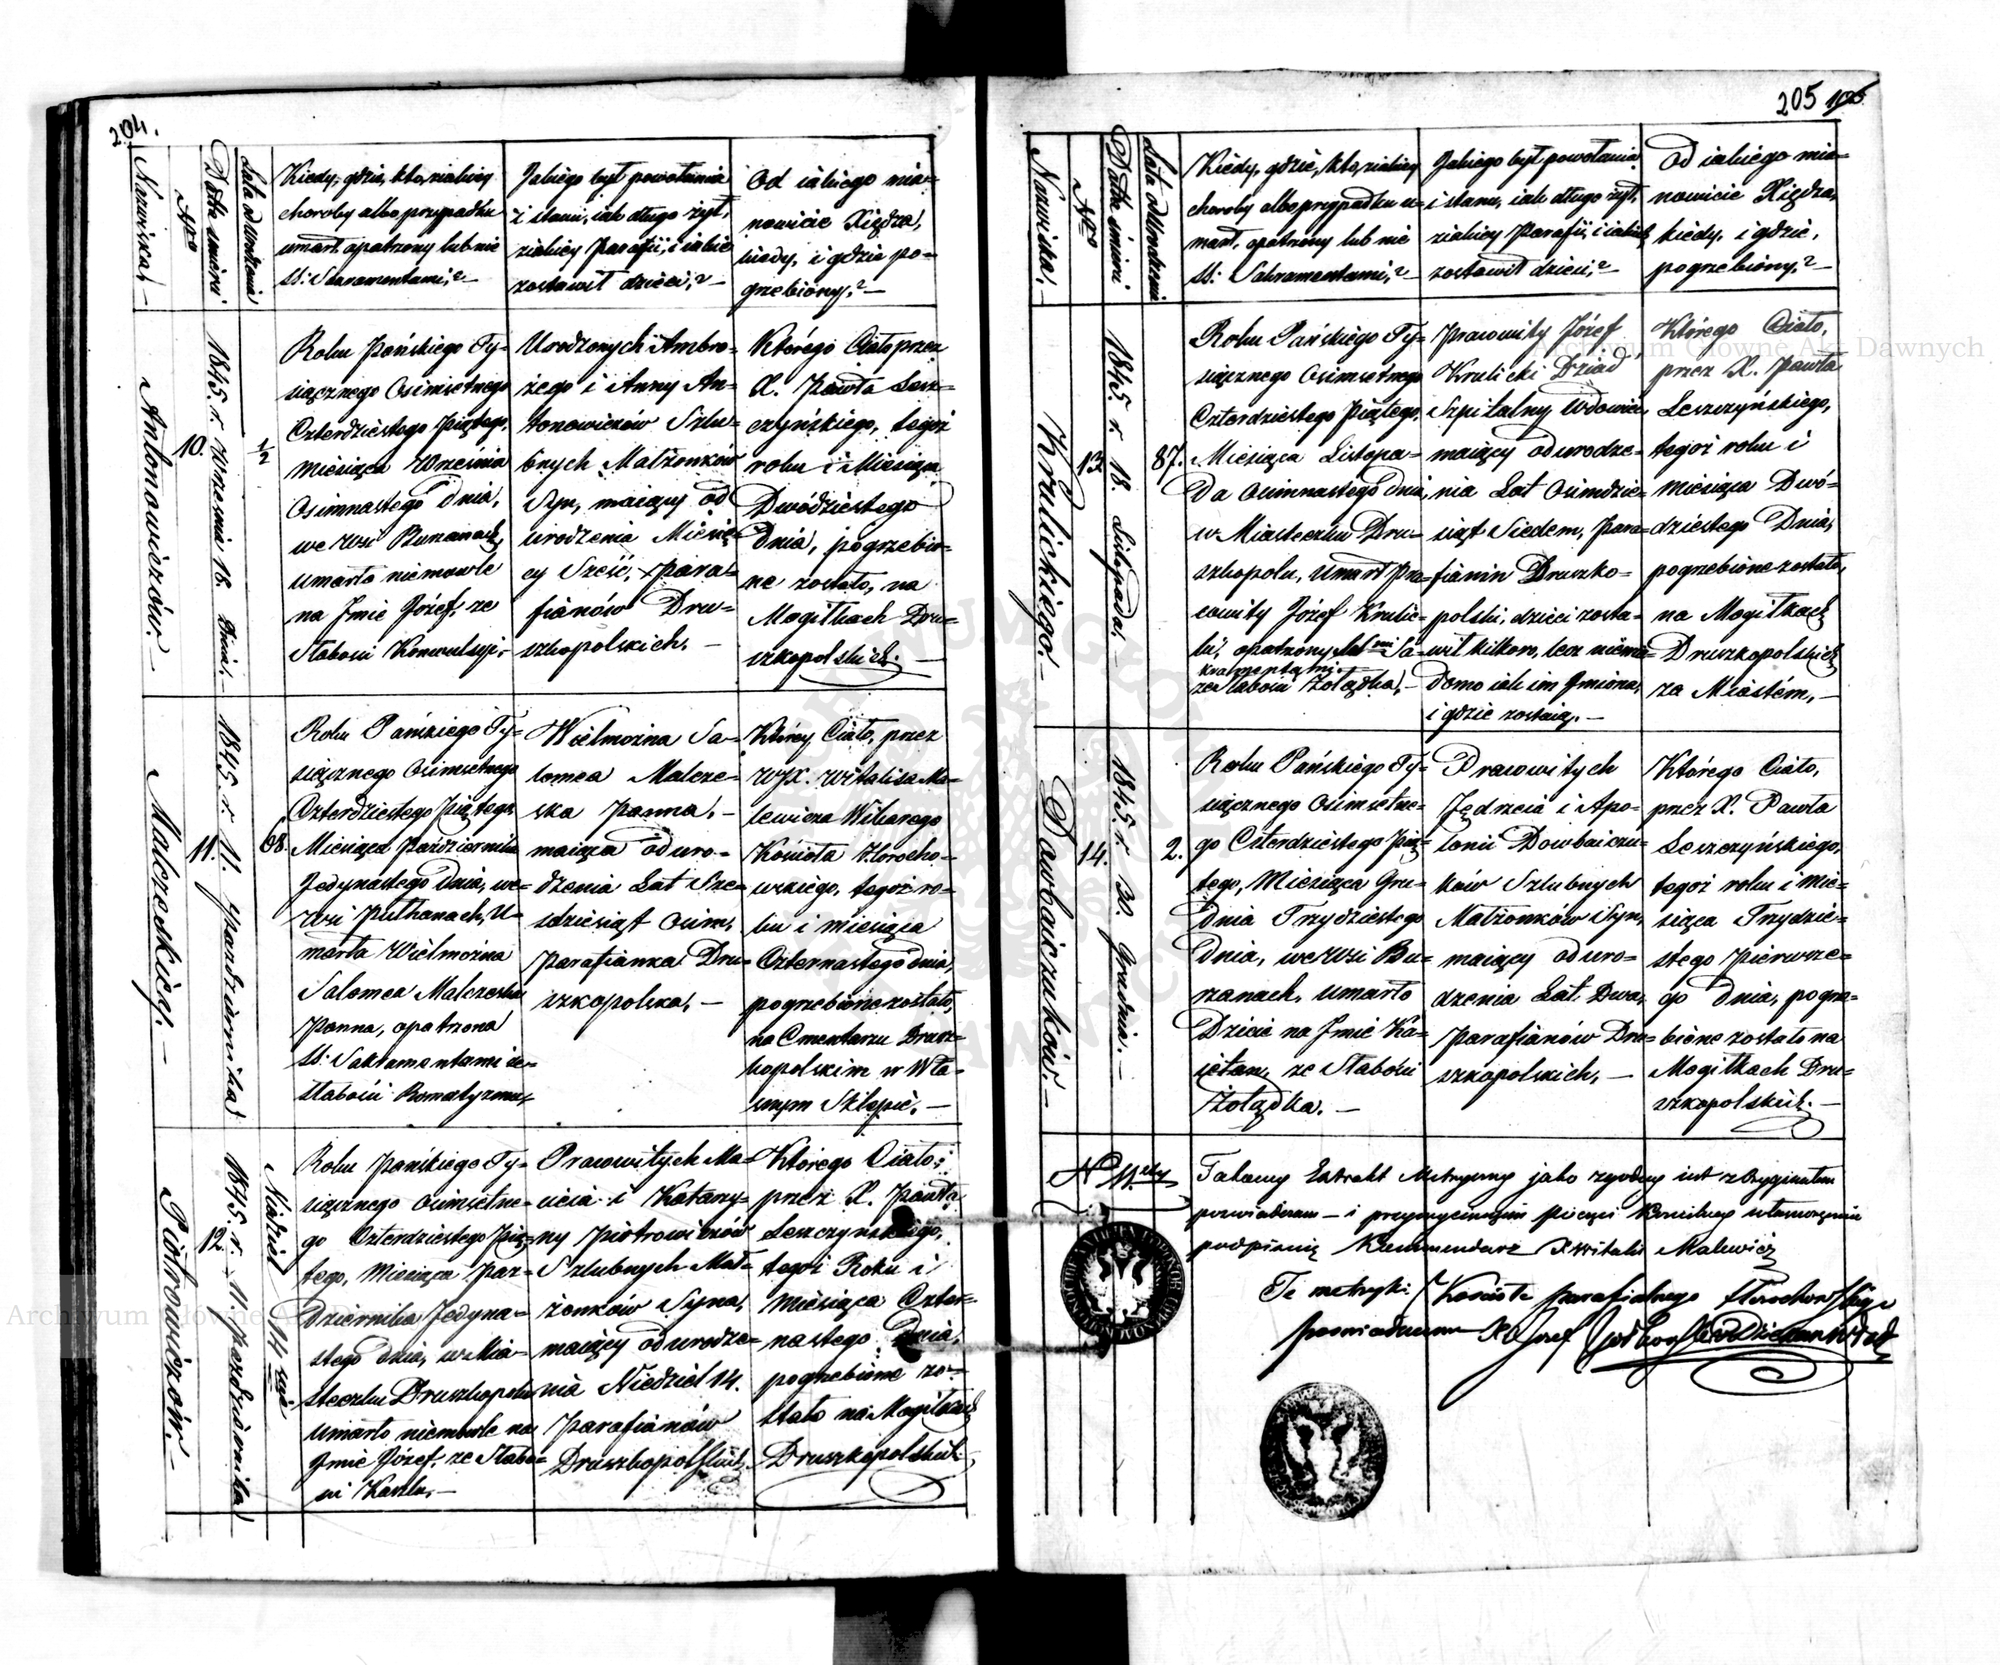 204.
Nazwiska. —
Nro
Datta śmierci
Lata od Urodzenia
Kiedy, gdzie, kto, z iakiey
choroby albo przypadku
umarł, opatrzony lub nie
SS: Sakramentami,? —
Jakiego był powołania
i stanu, iak długo żył,
z iakiey Parafii, i iakie
zostawił dzieci,? —
Od iakiego mia=
nowicie Xiędza,
kiedy, i gdzie po=
grzebiony,? —
Antonowiczów. —
10.
1845. r. Września 18. Dnia. —
1/2
Roku Pańskiego Ty=
siącznego Osimsetnego
Czterdziestego Piątego,
Miesiąca Września
Osimnastego Dnia,
we Wsi Buzanach,
umarło niemowle
na Jmie Józef, ze
Słabości Konwulsyi, —
Urodzonych Ambro=
żego i Anny An=
tonowiczów Szlu=
bnych Małżonków
Syn, maiący od
urodzenia Miesię=
cy Sześć, Para=
fianów Dru=
szkopolskich. —
Którego Ciało przez
X. Pawła Lesz=
czyńskiego, tegoż
roku i Miesiąca
Dwódziestego
Dnia, pogrzebio=
ne zostało, na
Mogiłkach Dru=
szkopolskich. —
Malczeskiey. —
11.
1845. r. 11. Października
68.
Roku Pańskiego Ty=
siącznego Osimsetnego
Czterdziestego Piątego
Miesiąca Października
Jedynastego Dnia, we
Wsi Pułhanach, U=
marła Wielmożna
Salomea Malczeska
Panna, opatrzona
SS: Sakramentami ze
słabości Romatyzmu,
Wielmożna Sa=
lomea Malcze=
ska Panna. —
maiąca od uro=
dzenia Lat Sze=
śdziesiąt Osim,
Parafianka Dru=
szkopolska, —
Którey Ciało, przez
WJX. Witalisa Ma=
lewicza Wikarego
Kościoła Horocho=
wskiego, tegoż ro=
ku i miesiąca
Czternastego dnia,
pogrzebione zostało,
na Cmentarzu Drusz=
kopolskim w Wła=
snym Sklepie. —
Piotrowiczów. —
12.
1845. r. 11 Października
Niedziel 14
Roku Pańskiego Ty=
siącznego Osimsetne=
go Czterdziestego Pią=
tego, Miesiąca Paź=
dziernika Jedyna=
stego dnia, w Mia=
steczku Druszkopolu
umarło niemowle na
Jmie Józef, ze Słabo=
ści Kaszlu, —
Pracowitych Ma=
cieia i Katarzy=
ny Piotrowiczów
Szlubnych Mał=
żonków Syna,
maiący od urodze=
nia Niedziel 14.
Parafianów
Druszkopolskich,
Którego Ciało,
przez X. Pawła
Leszczyńskiego,
tegoż Roku i
Miesiąca Czter=
nastego Dnia,
pogrzebione zo=
stało na Mogiłkach
Druszkopolskich.
205
Nazwiska. —
Nro
Datta śmierci
Lata od Urodzenia
Kiedy, gdzie, kto, z iakiey
choroby albo przypadku u=
marł, opatrzony lub nie
SS: Sakramentami,? —
Jakiego był powołania
i stanu, iak długo żył,
z iakiey Parafii, i iakie
zostawił dzieci,? —
Od iakiego mia=
nowicie Xiędza,
kiedy, i gdzie,
pogrzebiony,? —
Krulickiego. —
13.
1845. r. 18. Listopada. —
87.
Roku Pańskiego Ty=
siącznego Osimsetnego
Czterdziestego Piątego,
Miesiąca Listopa=
da Osimnastego dnia,
w Miasteczku Dru=
szkopolu, Umarł Pra=
cowity Józef Krulic=
ki, opatrzony Sa=
kramentami
ze słabości Żołądka, —
Pracowity Józef
Krulicki Dziad
Szpitalny Wdowiec,
maiący od urodze=
nia Lat Osimdzie=
siąt Siedem, Para=
fianin Druszko=
polski, dzieci zosta=
wił kilkoro, lecz niewia=
domo iak im Jmiona,
i gdzie zostaią. —
Którego Ciało,
przez X. Pawła
Leszczyńskiego,
tegoż roku i
Miesiąca Dwó=
dziestego Dnia,
pogrzebione zostało,
na Mogiłkach
Druszkopolskich
za Miastem, —
Dowbaiczuków. —
14.
1845. r. 30. Grudnia. —
2.
Roku Pańskiego Ty=
siącznego Osimsetne=
go Czterdziestego Pią=
tego, Miesiąca Gru=
dnia Trzydziestego
Dnia, we Wsi Bu=
zanach, umarło
Dziecie na Jmie Ka=
ietan, ze Słabości
Żołądka. —
Pracowitych
Jędrzeia i Apo=
lonii Dowbaiczu=
ków Szlubnych
Małżonków Syn,
maiący od uro=
dzenia Lat Dwa,
Parafianów Dru=
szkopolskich, —
Którego Ciało,
przez X. Pawła
Leszczyńskiego,
tegoż roku i Mie=
siąca Trzydzie=
stego Pierwsze=
go Dnia, pogrze=
bione zostało na
Mogiłkach Dru=
szkopolskich. —
Takowy Extrakt Metryczny jako zgodny iest z Oryginałem
poświadczam — i przy wyciśnięciu Pieczęci Kościelney własnoręcznie
podpisuię Kommendarz X Witalis Malewicz
Te metryki Kościoła Parafialnego Horochowskiego
poświadczam X Józef
Archiwum Główne Akt Dawnych
Archiwum Główne Akt Dawnych